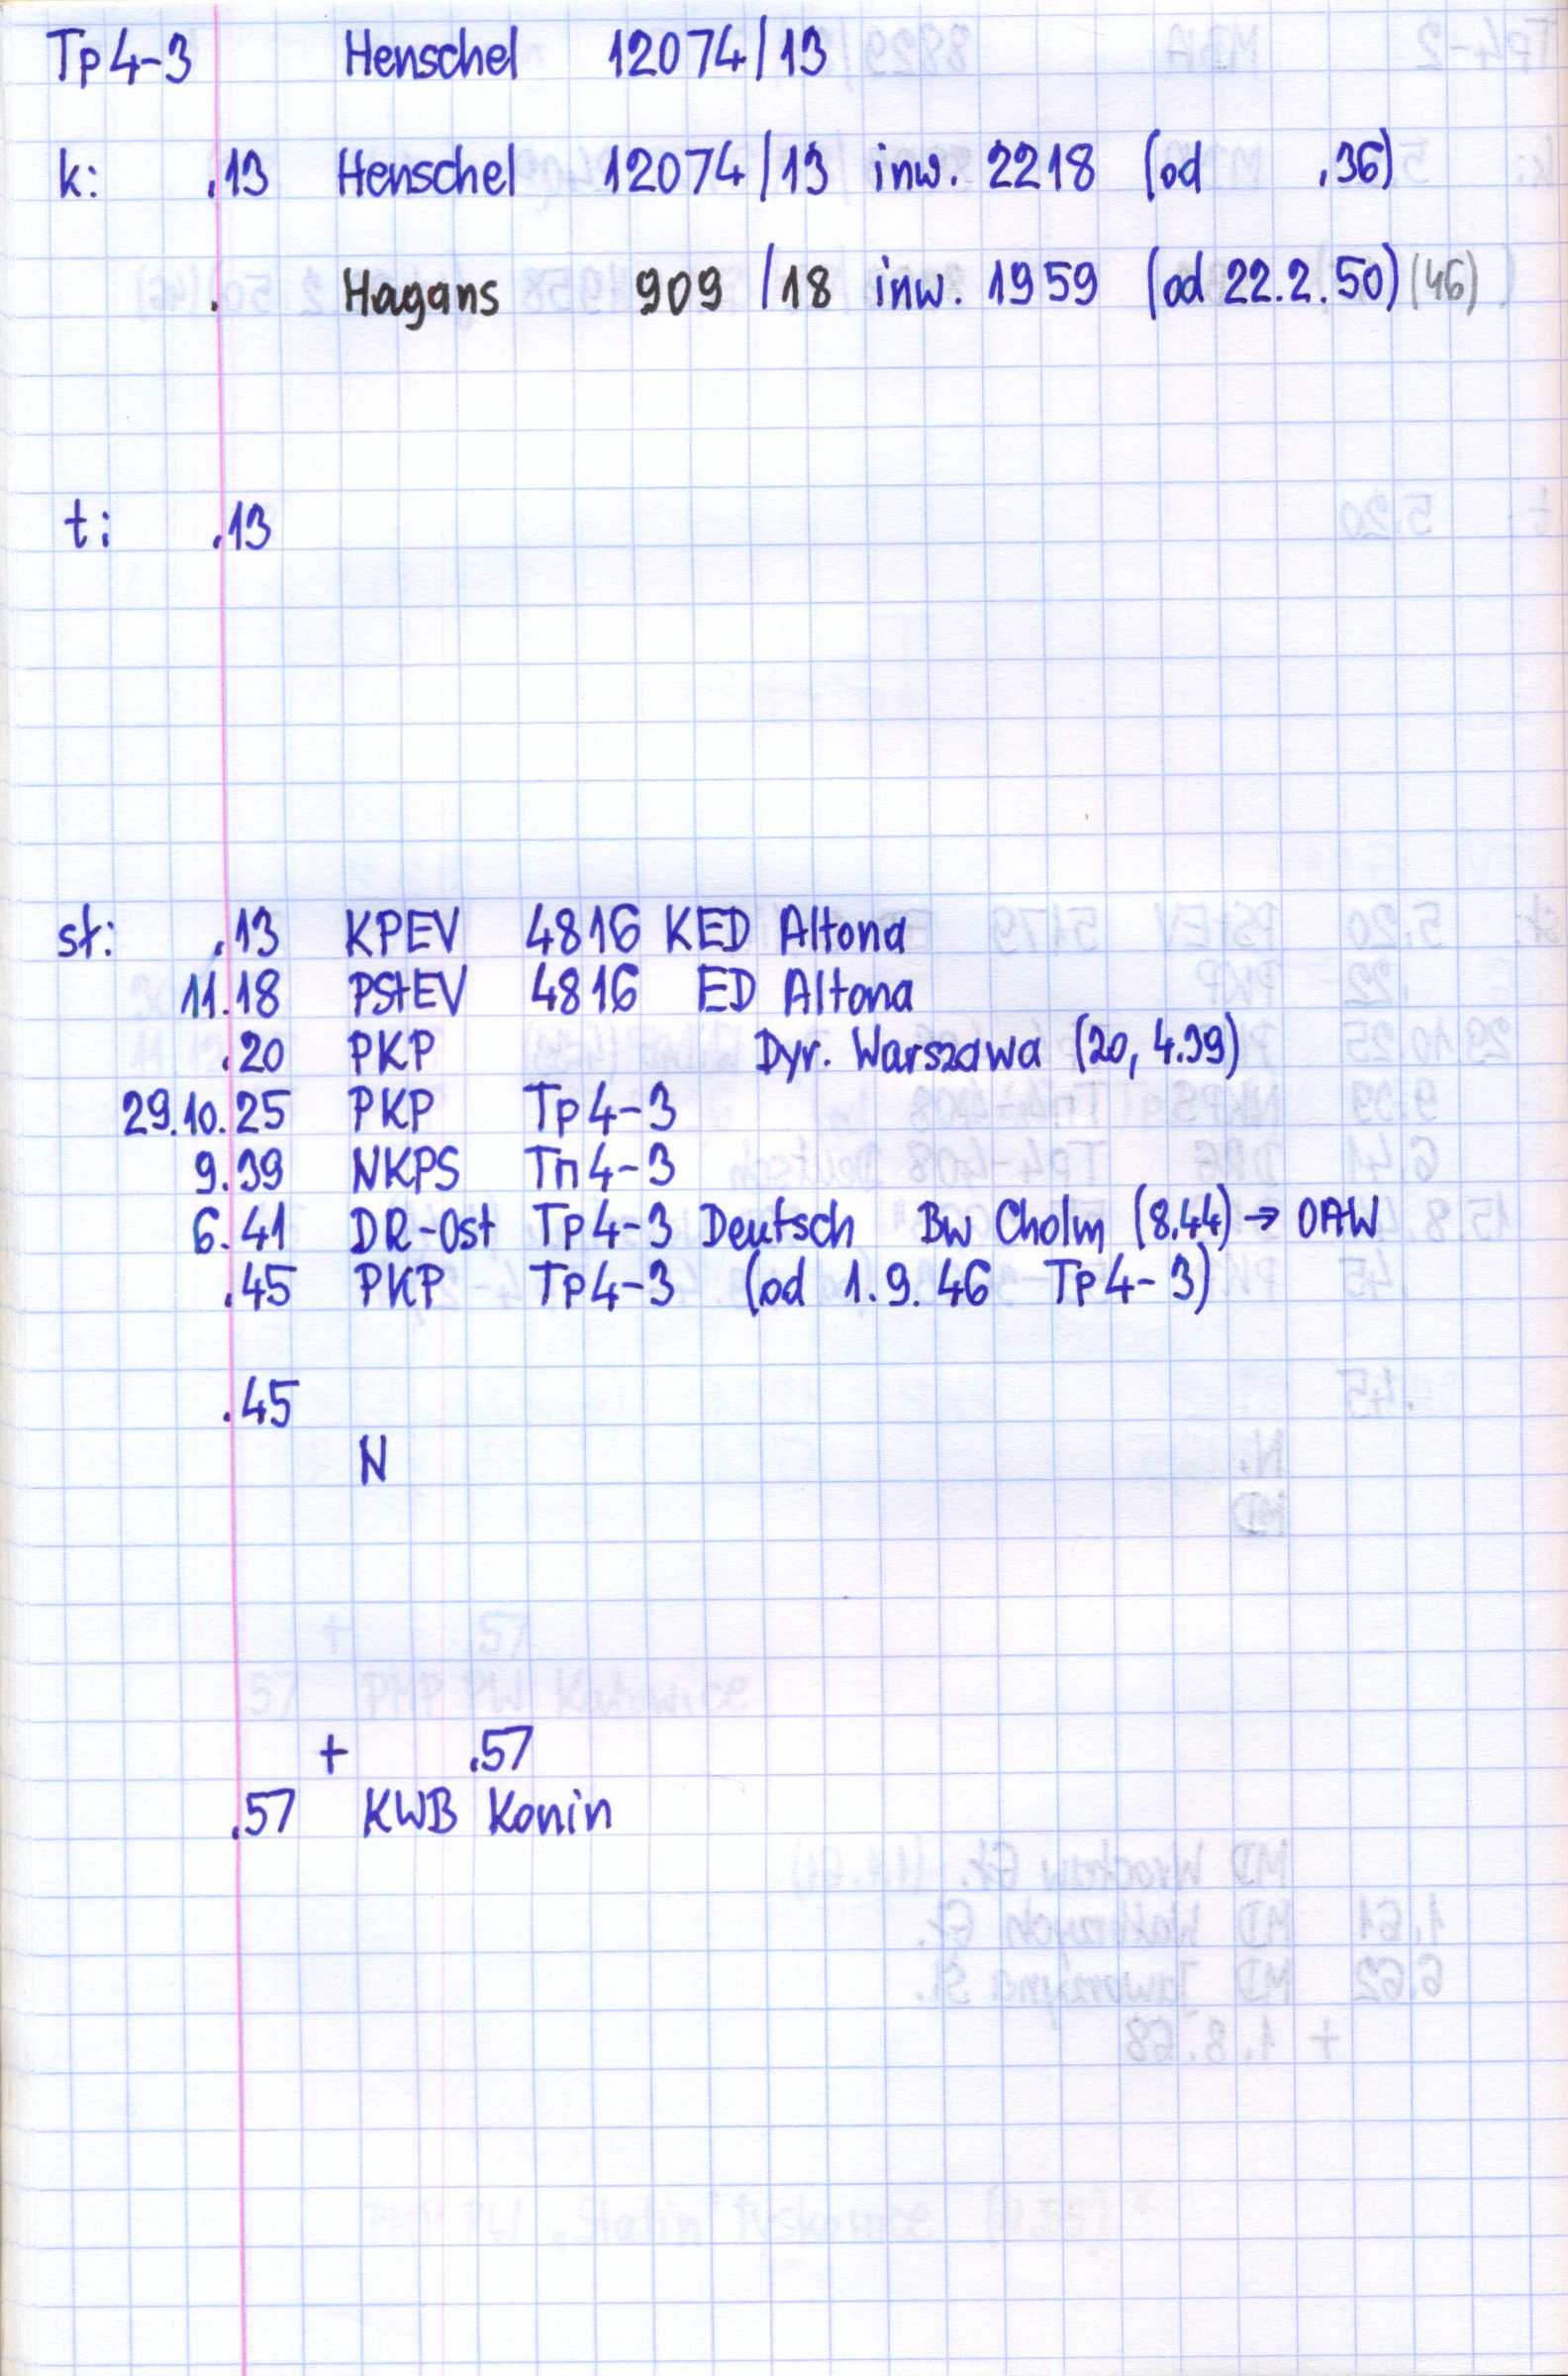 Tp4-3 Henschel 12074/13
k: .13 Henschel 12074/13 inw. 2218 (od .36)
. Hagans 909 /18 inw. 1959 (od 22.2.50) (46)
t: .13
st: .13 KPEV 4816 KED Altona
11.18 PStEV 4816 ED Altona
.20 PKP Dyr. Warszawa (20, 4.39)
29.10.25 PKP Tp4-3
9.39 NKPS Tп4-3
6.41 DR-Ost Tp4-3 Deutsch Bw Cholm (8.44) → OAW
.45 PKP Tp4-3 (od 1.9.46 Tp4-3)
.45
N
+ .57
.57 KWB Konin